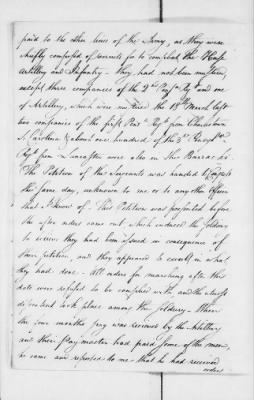 paid to the other lines of the Army, as they were
chiefly composed of recruits for to compleat the
Artillery and Infantry — they had not been mustered,
except three companies of the 2nd Pens. Regt and one
of Artillery, which were mustered the 18th March last
two companies of the first Pens. Regt from Charlestown
S. Carolina & about one hundred of the 3d
Regt from Lancaster were also in the Barracks.
The Petition of the Sergeants was handed
the same day, unknown to me or to any other Officer
that I know of. This Petition was presented before
the after orders came out which induced the soldiery
to believe they had been issued in consequence of
their petition, and they appeared to in what
they had done. All orders for marching after this
date were refused to be complied with, and the utmost
discontent took place among the soldiery — When
the four months pay was received by the Artillery
and their Paymaster had paid some of the men,
he came and reported to me that he had received
orders